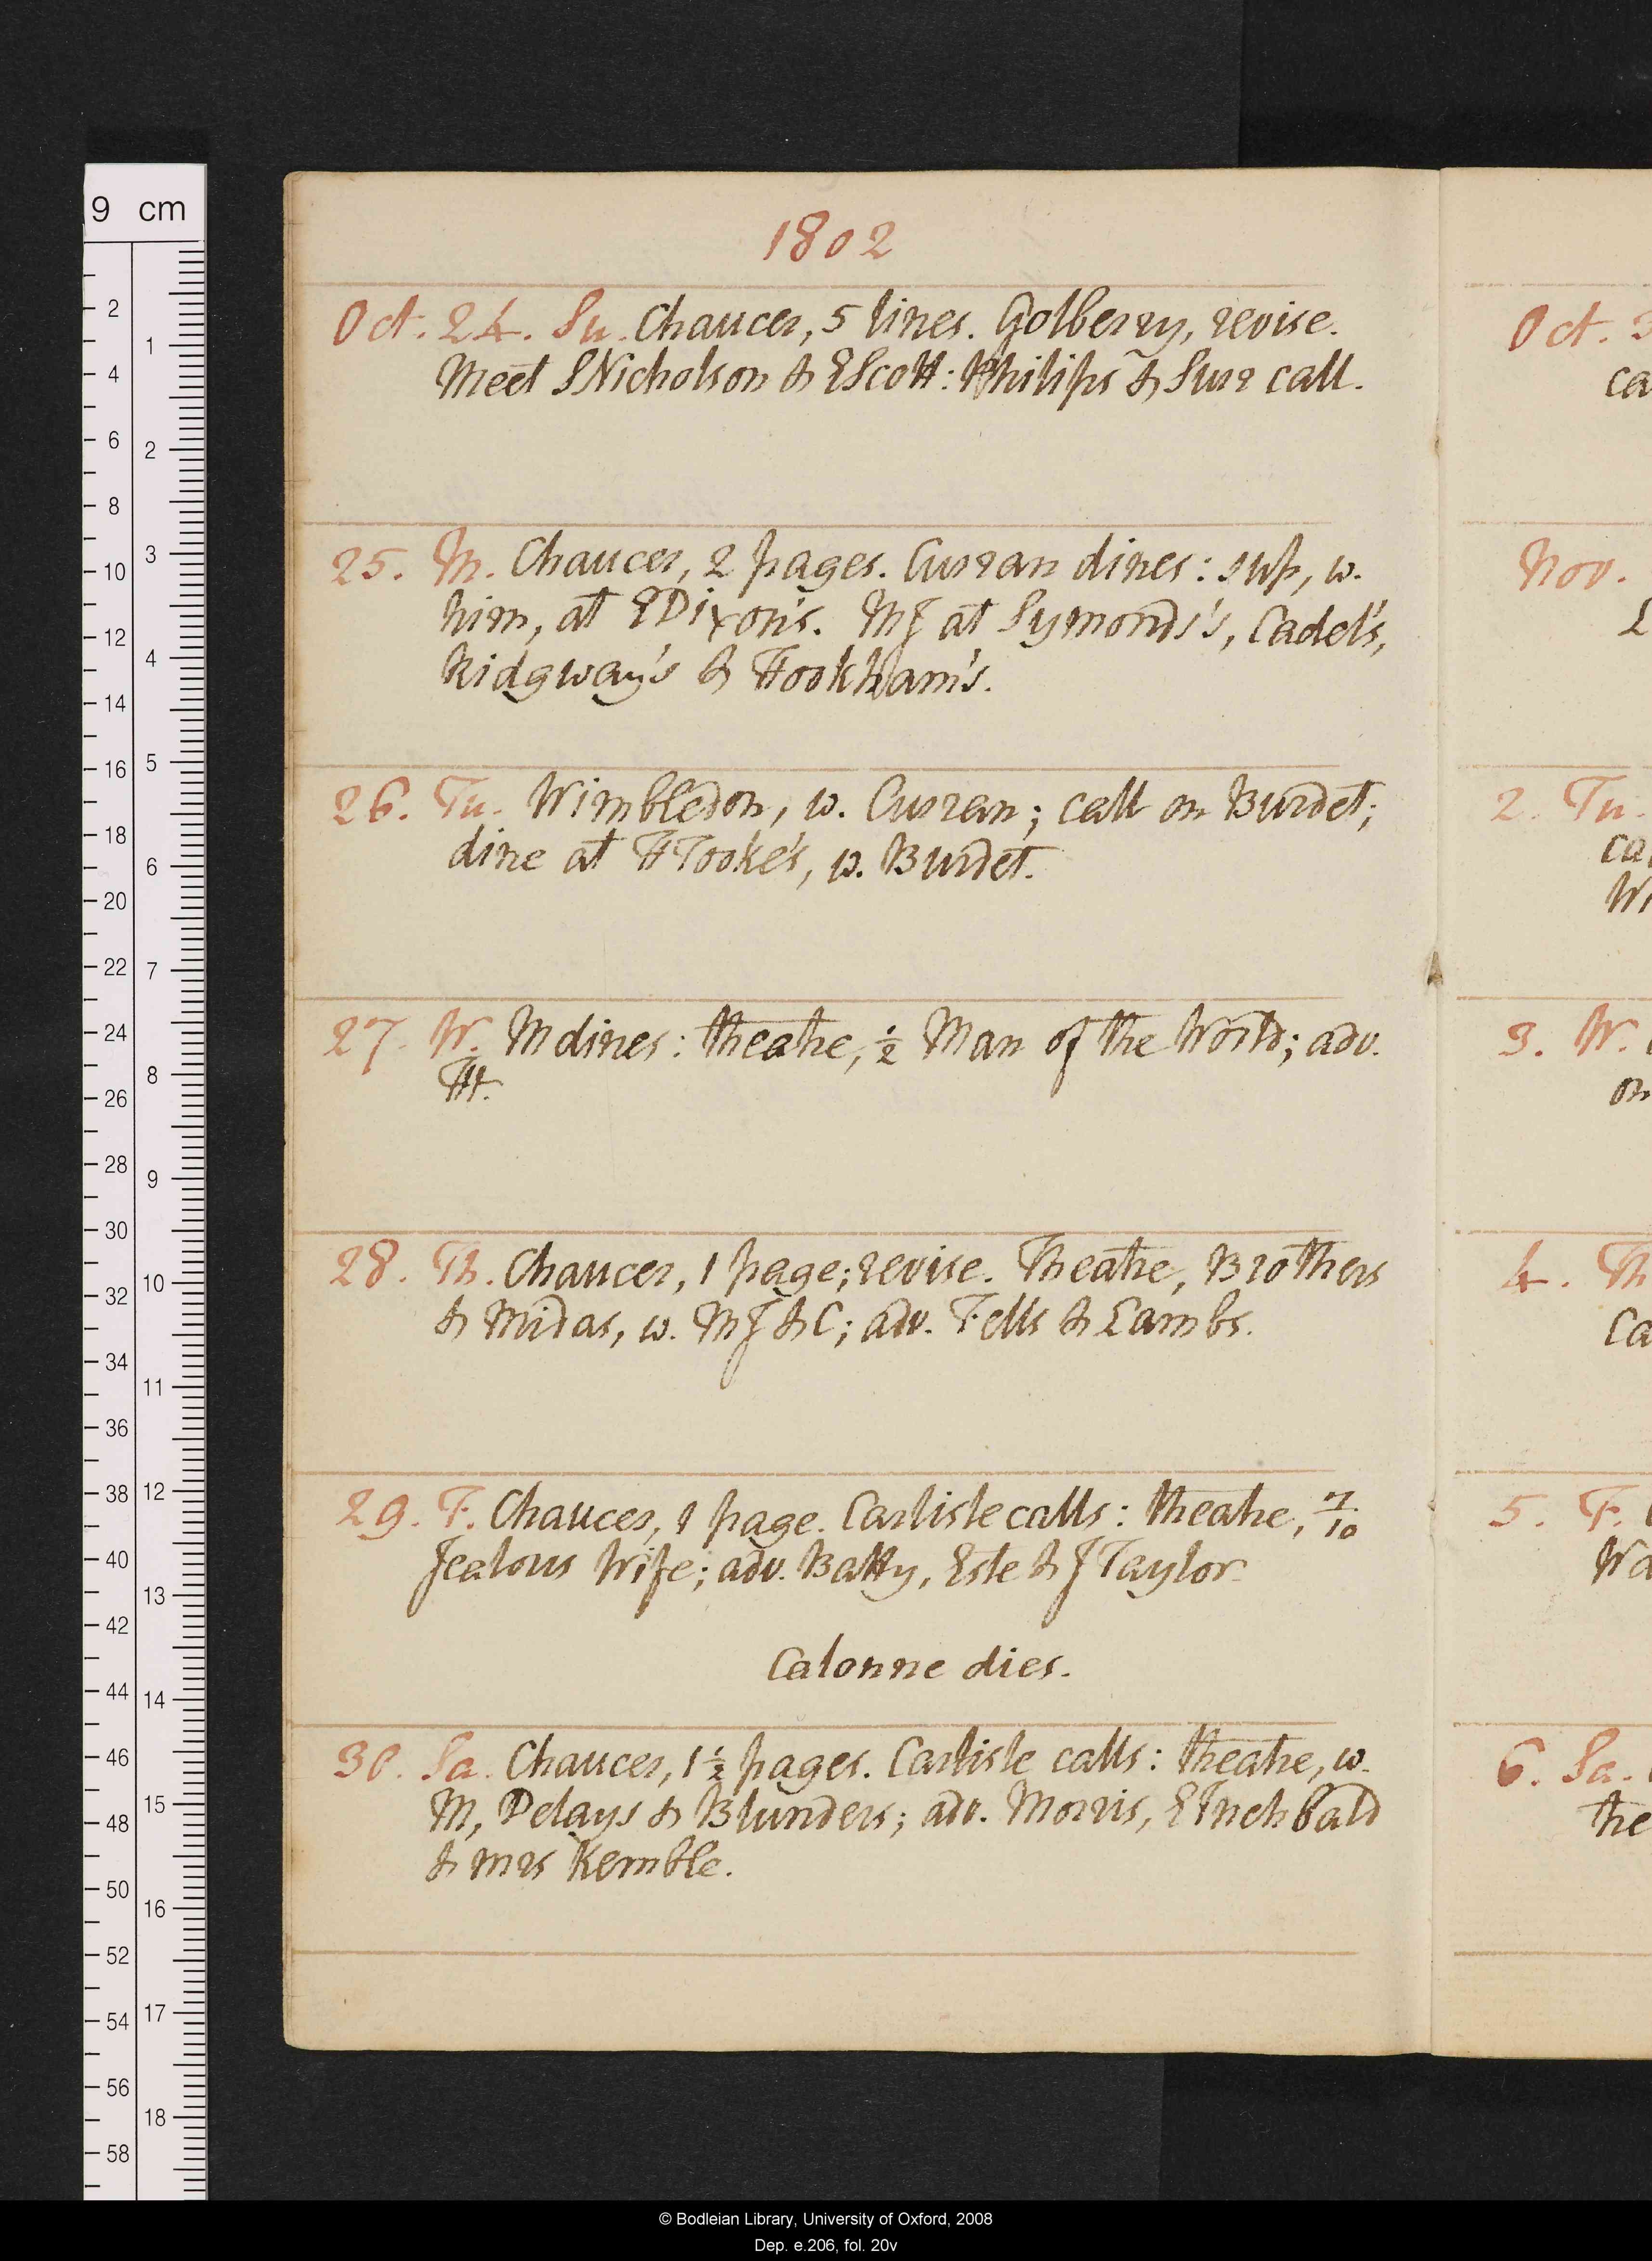 1802
Oct. 24. Su. Chaucer, 5 lines. Golberry, revise.
Meet SNicholson & EScott: Philips & Surr call.
25. M. Chaucer, 2 pages. Curran dines: sup, w.
him, at EDixon's. MJ at Symonds's, Cadel's,
Ridgway's & Hookham's.
26. Tu. Wimbledon, w. Curran; call on Burdet;
dine at HTooke's, w. Burdet.
27. W. M dines: theatre, ½ Man of the World; adv.
Ht.
28. Th. Chaucer, 1 page; revise. Theatre, Brothers
& Midas, w. MJ & C; adv. Fells & Lambs.
29. F. Chaucer, 1 page. Carlisle calls: theatre, 7/10
Jealous Wife; adv. Batty, Este & J Taylor
Calonne dies.
30. Sa. Chaucer, 1 ½ pages. Carlisle calls: theatre, w.
M, Delays & Blunders; adv. Morris, EInchbald
& mrs Kemble.
Oct. 3
ca
Nov.
L
2. Tu.
cal
Wi
3. W.
on
4. Th
Ca
5. F.
Wa
6. Sa.
the
9 cm
2
4
6
8
10
12
14
16
18
20
22
24
26
28
30
32
34
36
38
40
42
44
46
48
50
52
54
56
58
1
2
3
4
5
6
7
8
9
10
11
12
13
14
15
16
17
18
© Bodleian Library, University of Oxford, 2008
Dep. e.206, fol. 20v